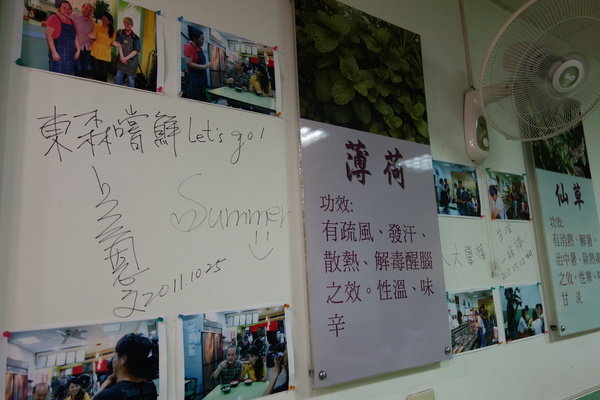 東森嚐鮮 Let's go!
Summer
2011.10.25
薄荷
功效:
有疏風、發汗、
散熱、解毒醒腦
之效。性溫、味
辛
仙草
功效:
有消熱、解暑、
治中暑、除熱毒
之效。性寒、味
甘淡